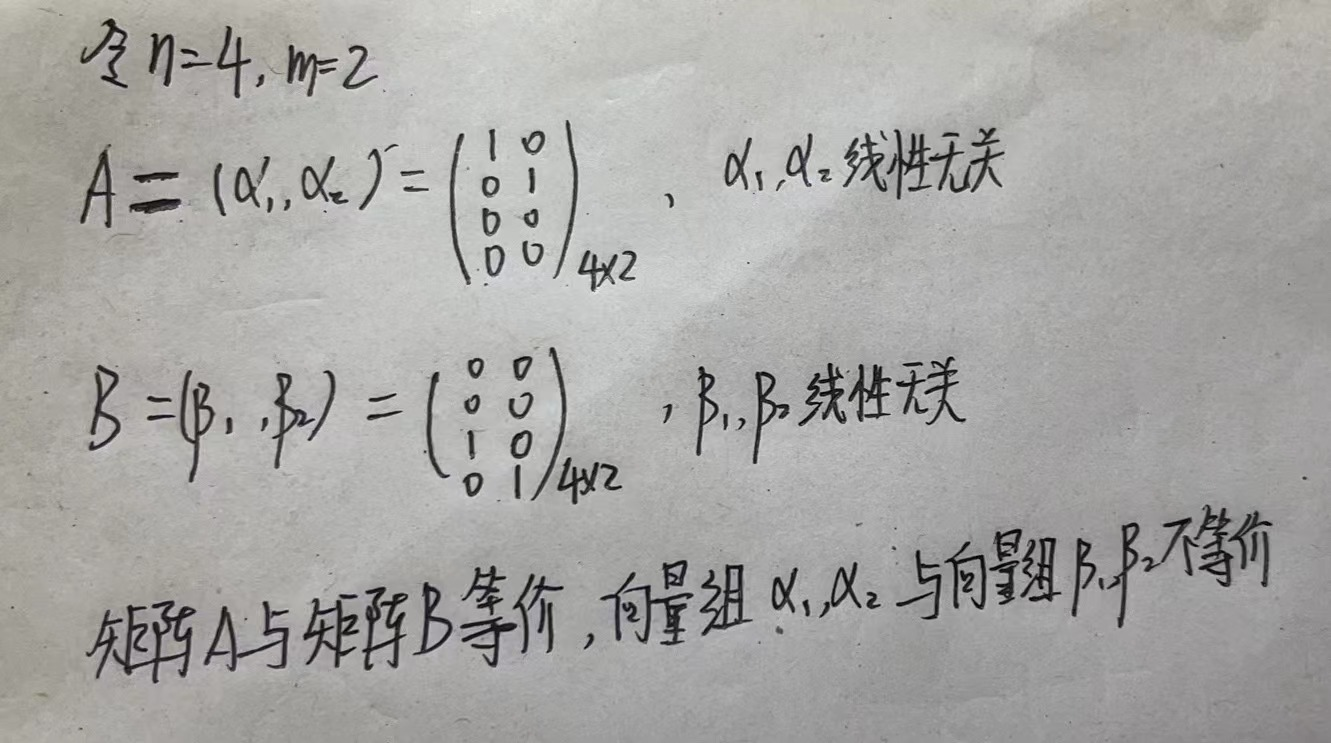 令 n=4, m=2
A = (α₁, α₂) = ( 1 0
0 1
0 0
0 0 )₄ₓ₂ , α₁, α₂ 线性无关
B = (β₁, β₂) = ( 0 0
0 0
1 0
0 1 )₄ₓ₂ , β₁, β₂ 线性无关
矩阵A与矩阵B等价, 向量组 α₁, α₂ 与向量组 β₁, β₂ 不等价